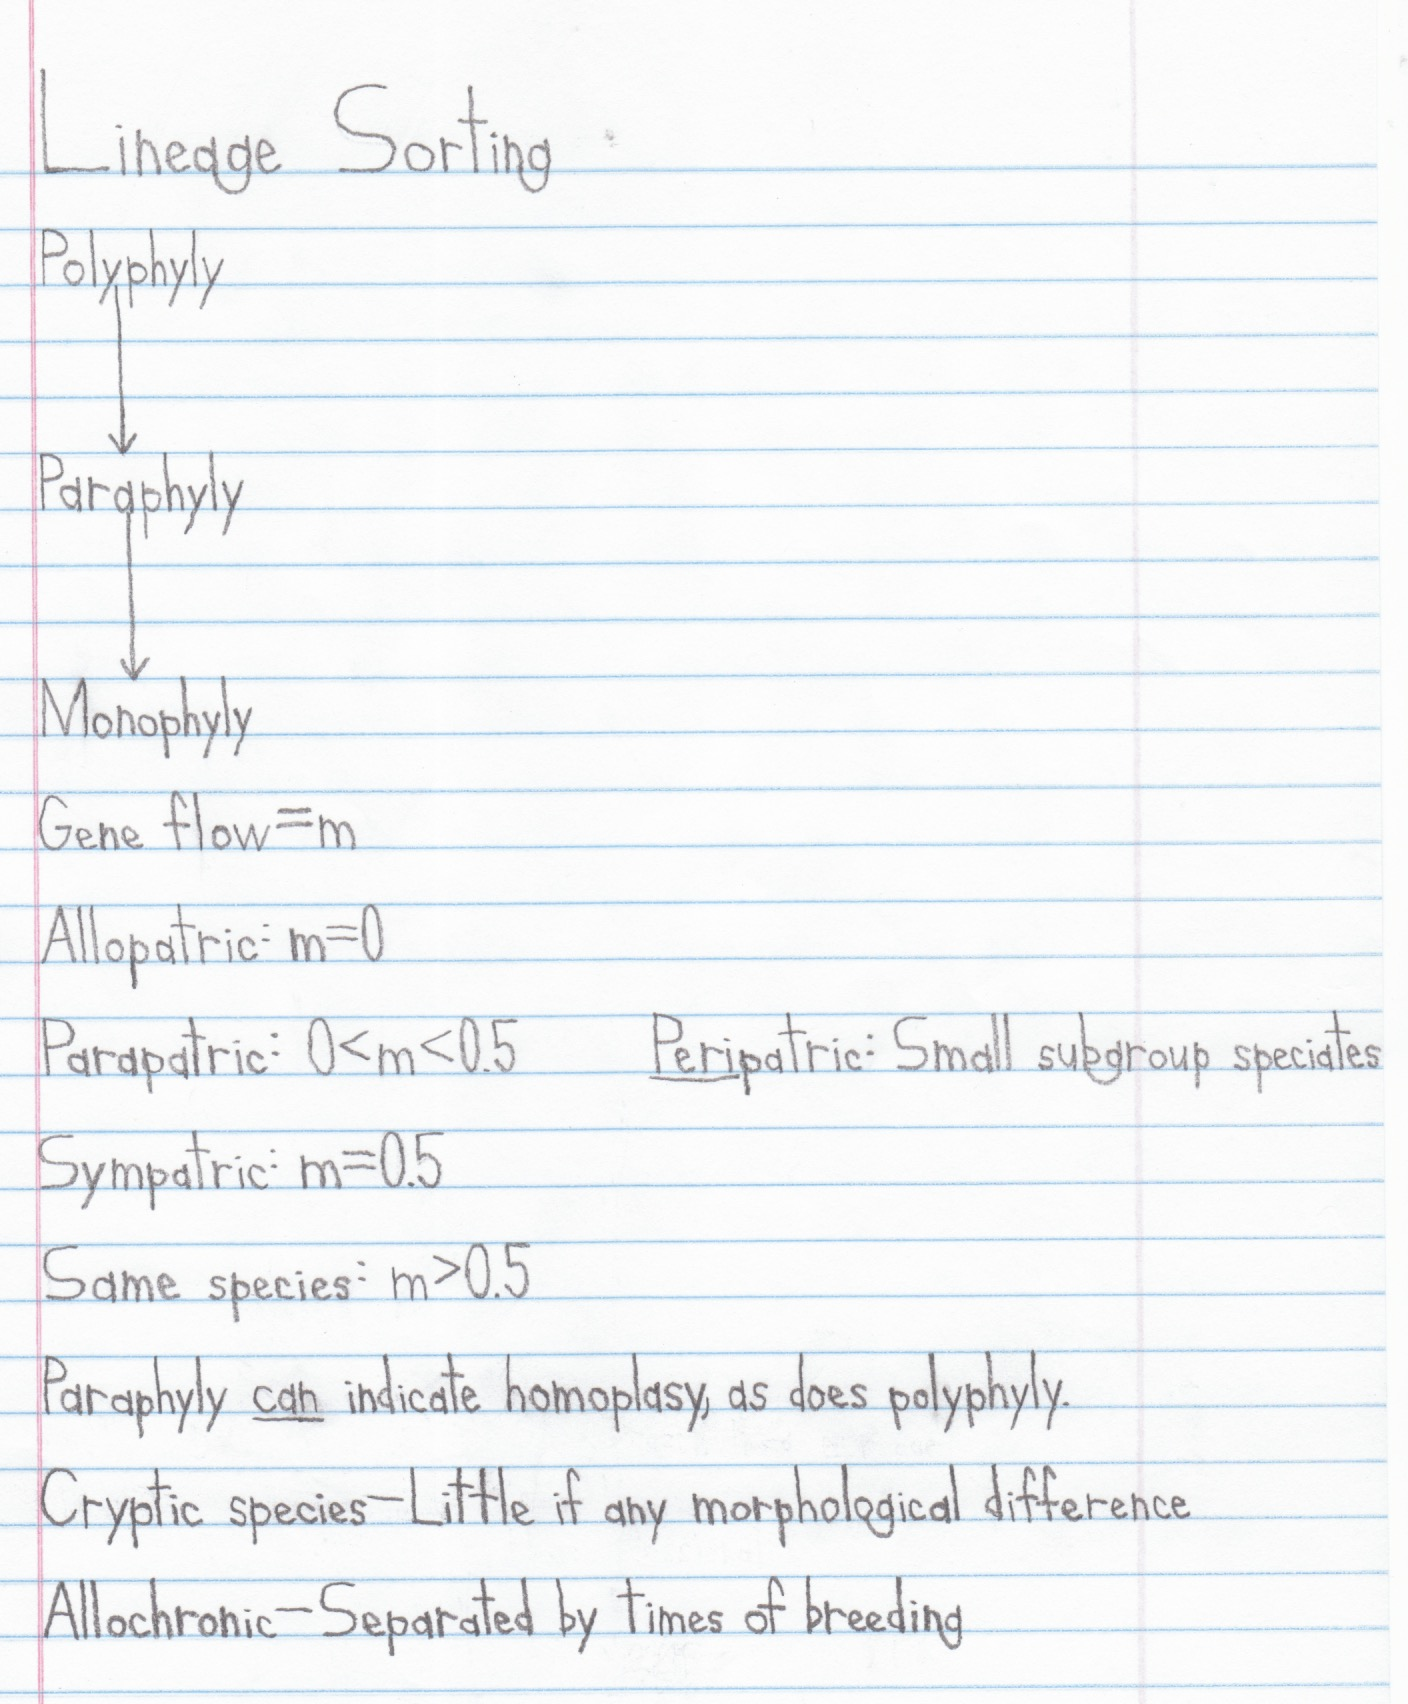 Lineage Sorting
Polyphyly
Paraphyly
Monophyly
Gene flow=m
Allopatric: m=0
Parapatric: 0<m<0.5 Peripatric: Small subgroup speciates
Sympatric: m=0.5
Same species: m>0.5
Paraphyly can indicate homoplasy, as does polyphyly.
Cryptic species-Little if any morphological difference
Allochronic-Separated by times of breeding